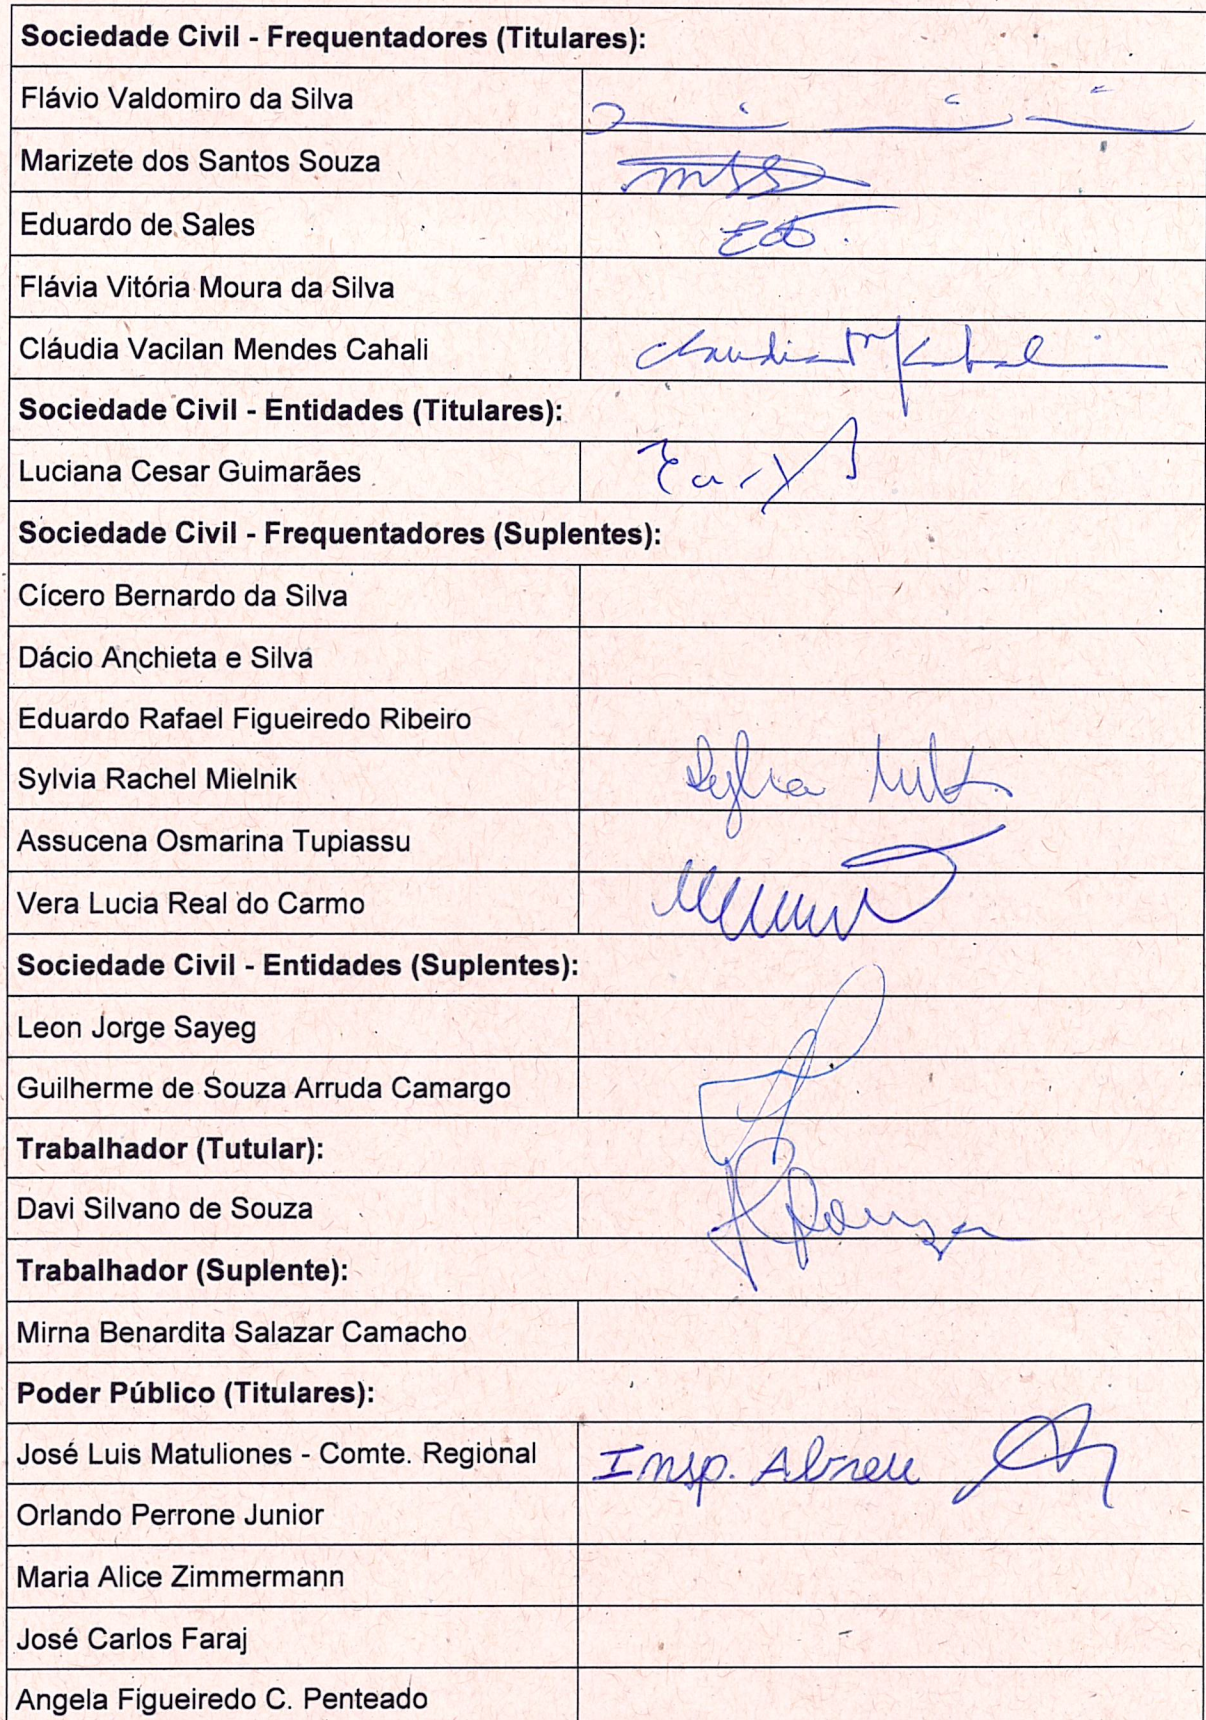 Sociedade Civil - Frequentadores (Titulares):
Flávio Valdomiro da Silva
Marizete dos Santos Souza
Eduardo de Sales
Flávia Vitória Moura da Silva
Cláudia Vacilan Mendes Cahali
Sociedade Civil - Entidades (Titulares):
Luciana Cesar Guimarães
Sociedade Civil - Frequentadores (Suplentes):
Cícero Bernardo da Silva
Dácio Anchieta e Silva
Eduardo Rafael Figueiredo Ribeiro
Sylvia Rachel Mielnik
Assucena Osmarina Tupiassu
Vera Lucia Real do Carmo
Sociedade Civil - Entidades (Suplentes):
Leon Jorge Sayeg
Guilherme de Souza Arruda Camargo
Trabalhador (Tutular):
Davi Silvano de Souza
Trabalhador (Suplente):
Mirna Benardita Salazar Camacho
Poder Público (Titulares):
José Luis Matuliones - Comte. Regional Insp. Abreu
Orlando Perrone Junior
Maria Alice Zimmermann
José Carlos Faraj
Angela Figueiredo C. Penteado